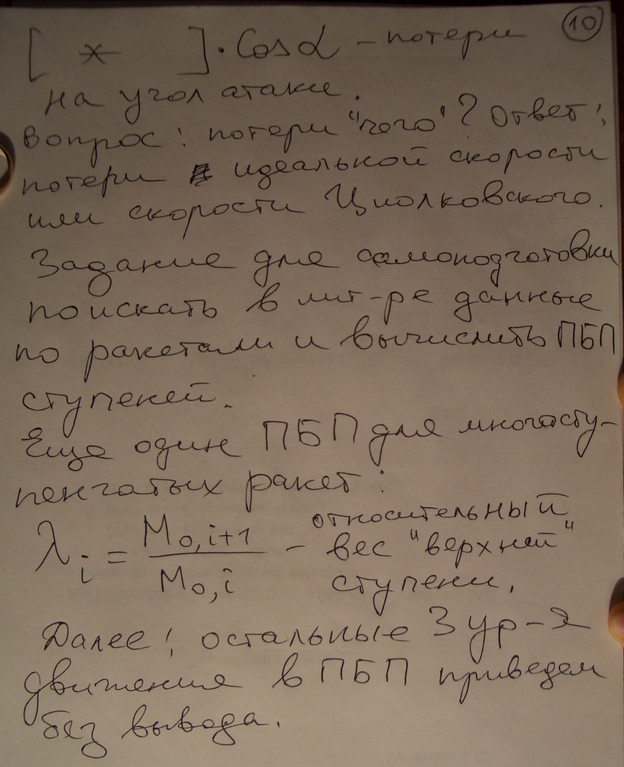 10
[ * ] · Cosα – потери
на угол атаки.
Вопрос: потери "чего"? Ответ:
потери идеальной скорости
или скорости Циолковского.
Задание для самоподготовки
поискать в лит-ре данные
по ракетам и вычислить ПБП
ступеней.
Еще один ПБП для многосту-
пенчатых ракет:
λi = M0,i+1 / M0,i – относительный
вес "верхней"
ступени.
Далее: остальные 3 ур-я
движения в ПБП приведем
без вывода.